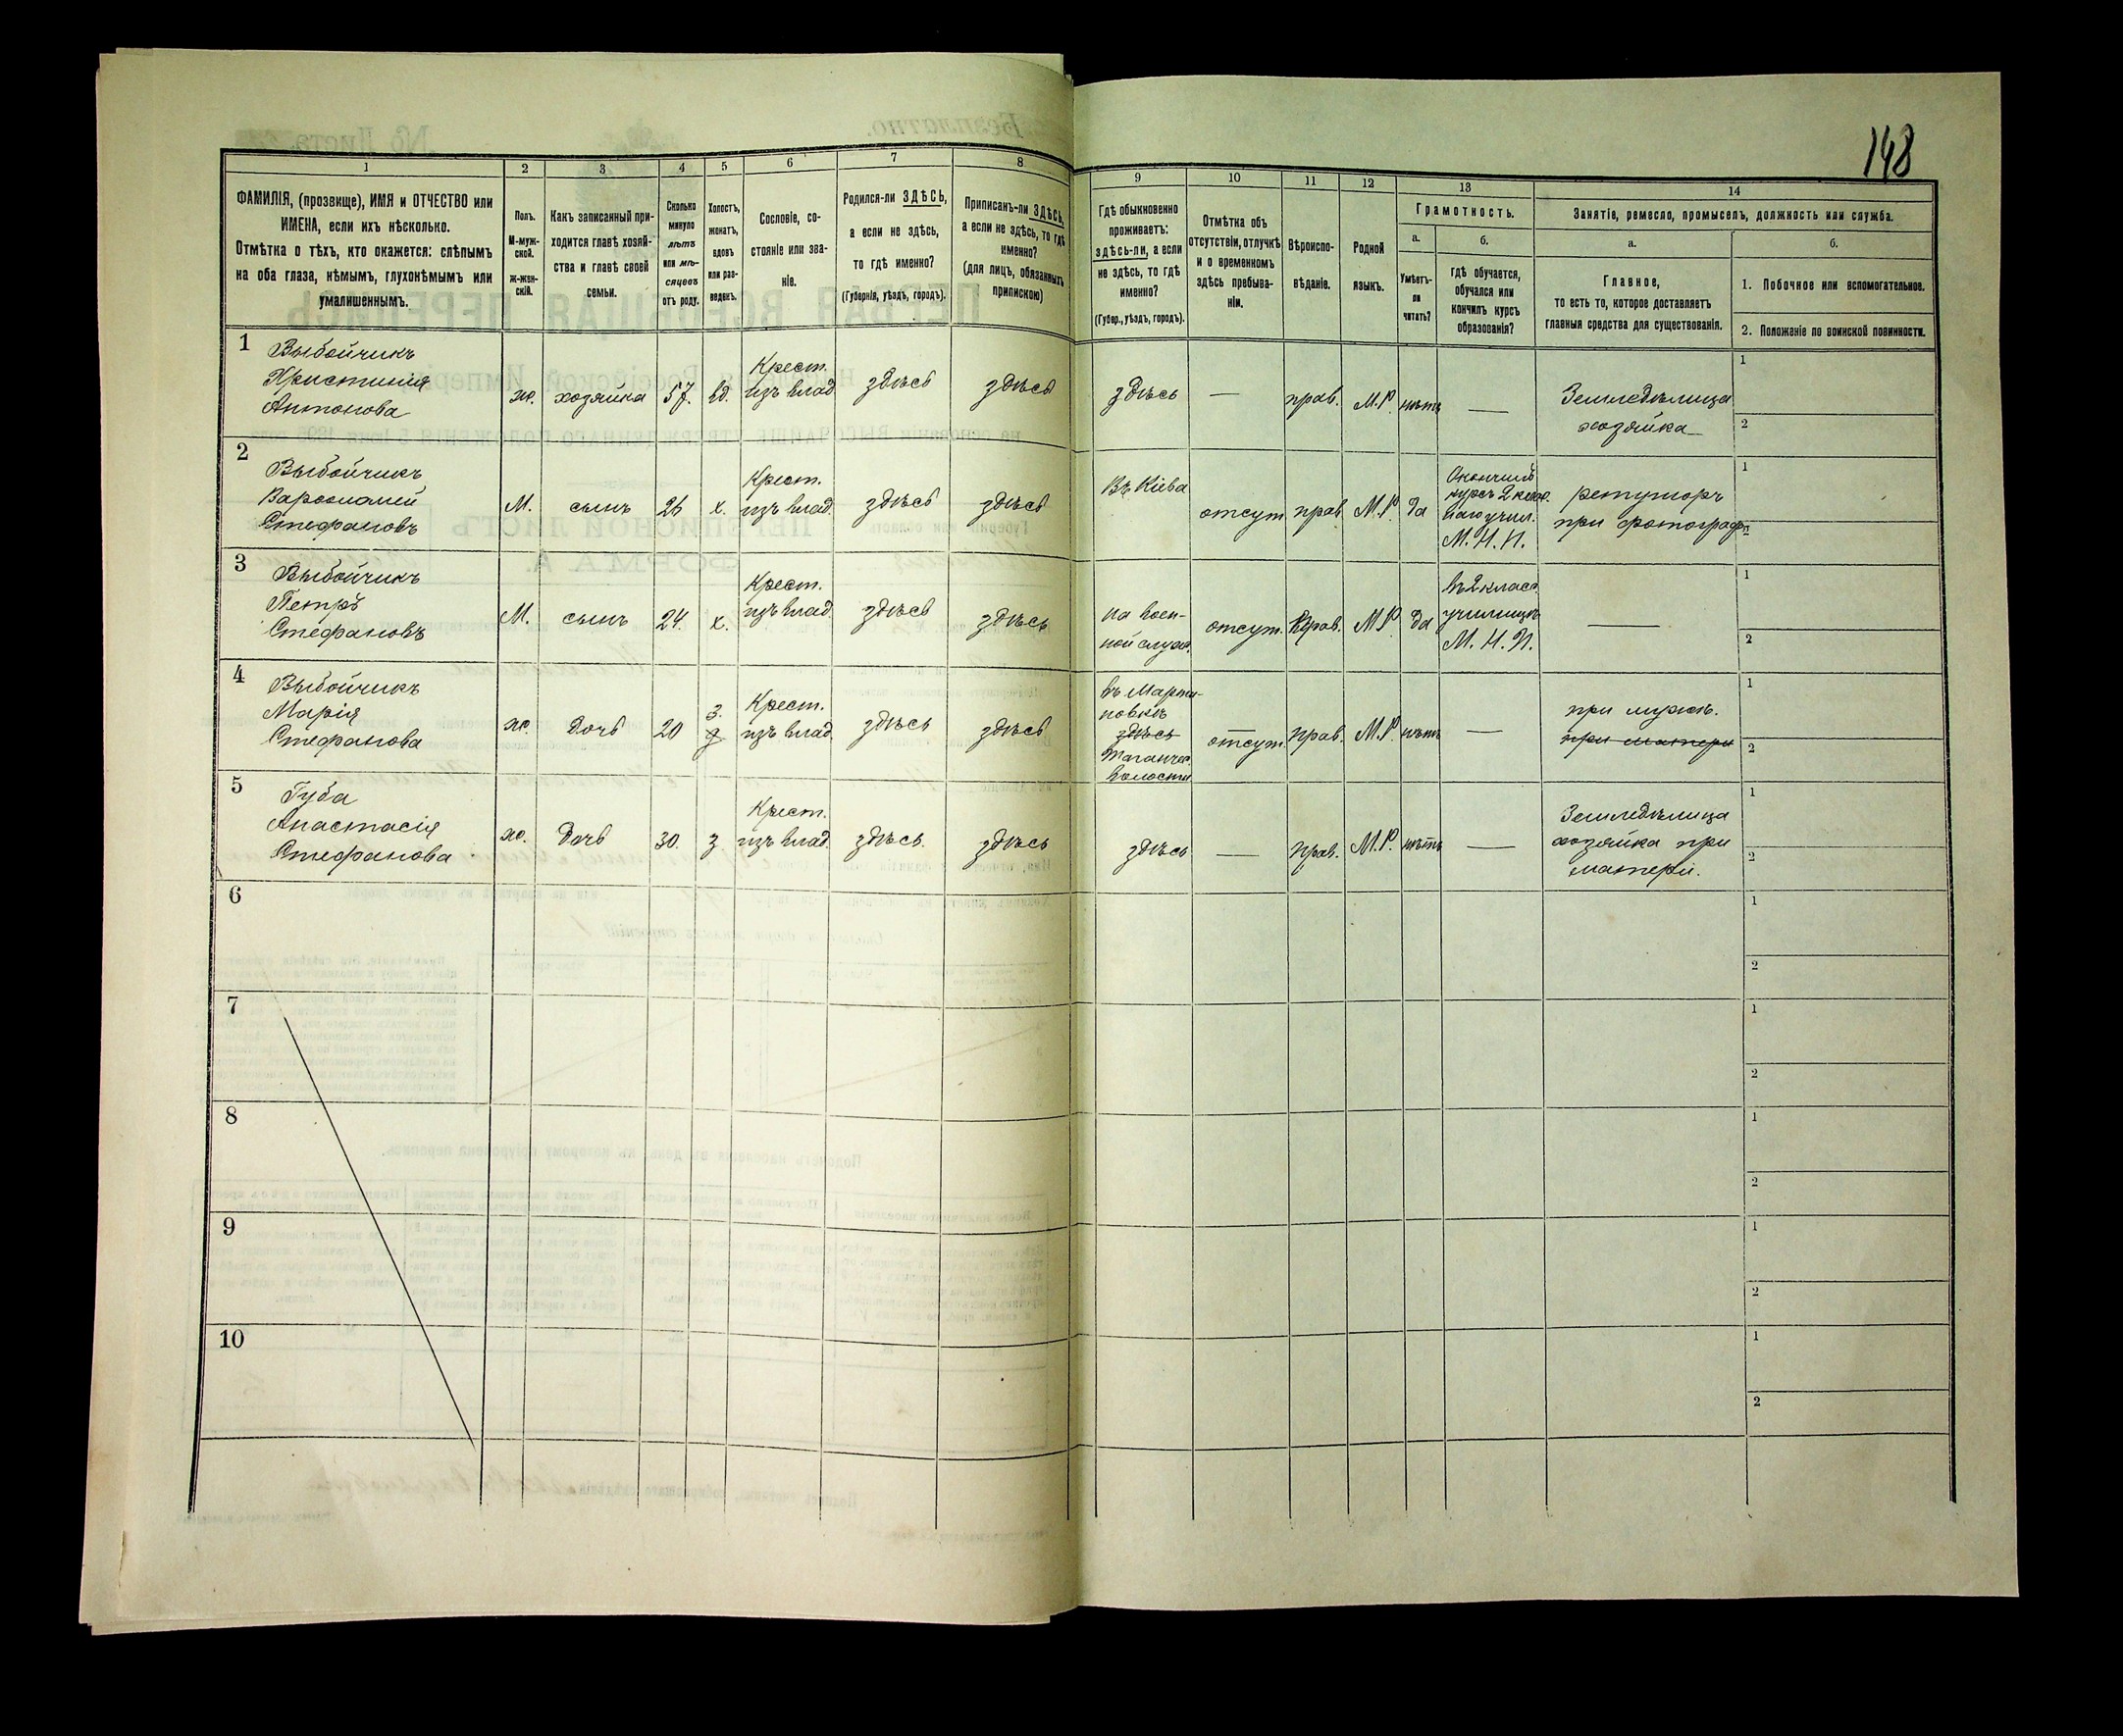 148
1
2
3
4
5
6
7
8
9
10
11
12
13
14
ФАМИЛІЯ, (прозвище), ИМЯ и ОТЧЕСТВО или
ИМЕНА, если ихъ нѣсколько.
Отмѣтка о тѣхъ, кто окажется: слѣпымъ
на оба глаза, нѣмымъ, глухонѣмымъ или
умалишеннымъ.
Полъ.
М-муж-
ской.
ж-жен-
скій.
Какъ записанный при-
ходится главѣ хозяй-
ства и главѣ своей
семьи.
Сколько
минуло
лѣтъ
или мѣ-
сяцевъ
отъ роду.
Холостъ,
женатъ,
вдовъ
или раз-
веденъ.
Сословіе, со-
стояніе или зва-
ніе.
Родился-ли ЗДѢСЬ,
а если не здѣсь,
то гдѣ именно?
(Губернія, уѣздъ, городъ).
Приписанъ-ли ЗДѢСЬ,
а если не здѣсь, то гдѣ
именно?
(для лицъ, обязанныхъ
припискою)
Гдѣ обыкновенно
проживаетъ:
здѣсь-ли, а если
не здѣсь, то гдѣ
именно?
(Губер., уѣздъ, городъ).
Отмѣтка объ
отсутствіи, отлучкѣ
и о временномъ
здѣсь пребыва-
ніи.
Вѣроиспо-
вѣданіе.
Родной
языкъ.
Грамотность.
а.
Умѣетъ-
ли
читать?
б.
гдѣ обучается,
обучался или
кончилъ курсъ
образованія?
Занятіе, ремесло, промыселъ, должность или служба.
а.
Главное,
то есть то, которое доставляетъ
главныя средства для существованія.
б.
1. Побочное или вспомогательное.
2. Положеніе по воинской повинности.
1
Выбойчикъ
Христинія
Антонова
ж.
хозяйка
57.
вд.
Крест.
изъ влад.
здѣсь
здѣсь
здѣсь
—
прав.
М.Р.
нѣтъ
—
Земледѣлица
хозяйка
1
2
2
Выбойчикъ
Варфоломей
Стефановъ
М.
сынъ
26
х.
Крест.
изъ влад.
здѣсь
здѣсь
Въ Кіева
отсут
прав
М.Р.
да
Окончилъ
курсъ 2 клас.
наго учил.
М. Н. П.
ретушоръ
при фотограф.
1
2
3
Выбойчикъ
Петръ
Стефановъ
М.
сынъ
24.
х.
Крест.
изъ влад.
здѣсь
здѣсь
На воен-
ной служ.
отсут.
прав.
М.Р.
да
въ 2 класс.
училищѣ
М. Н. П.
—
1
2
4
Выбойчикъ
Марія
Стефанова
ж.
дочь
20
з.
Крест.
изъ влад.
здѣсь
здѣсь
въ Марти-
новкѣ
здѣсь
Таганчес.
волости
отсут.
прав.
М.Р.
нѣтъ
—
при мужѣ.
при матери
1
2
5
Губа
Анастасія
Стефанова
ж.
дочь
30.
з
Крест.
изъ влад.
здѣсь.
здѣсь
здѣсь
—
прав.
М.Р.
нѣтъ
—
Земледѣлица
хозяйка при
матери.
1
2
6
1
2
7
1
2
8
1
2
9
1
2
10
1
2